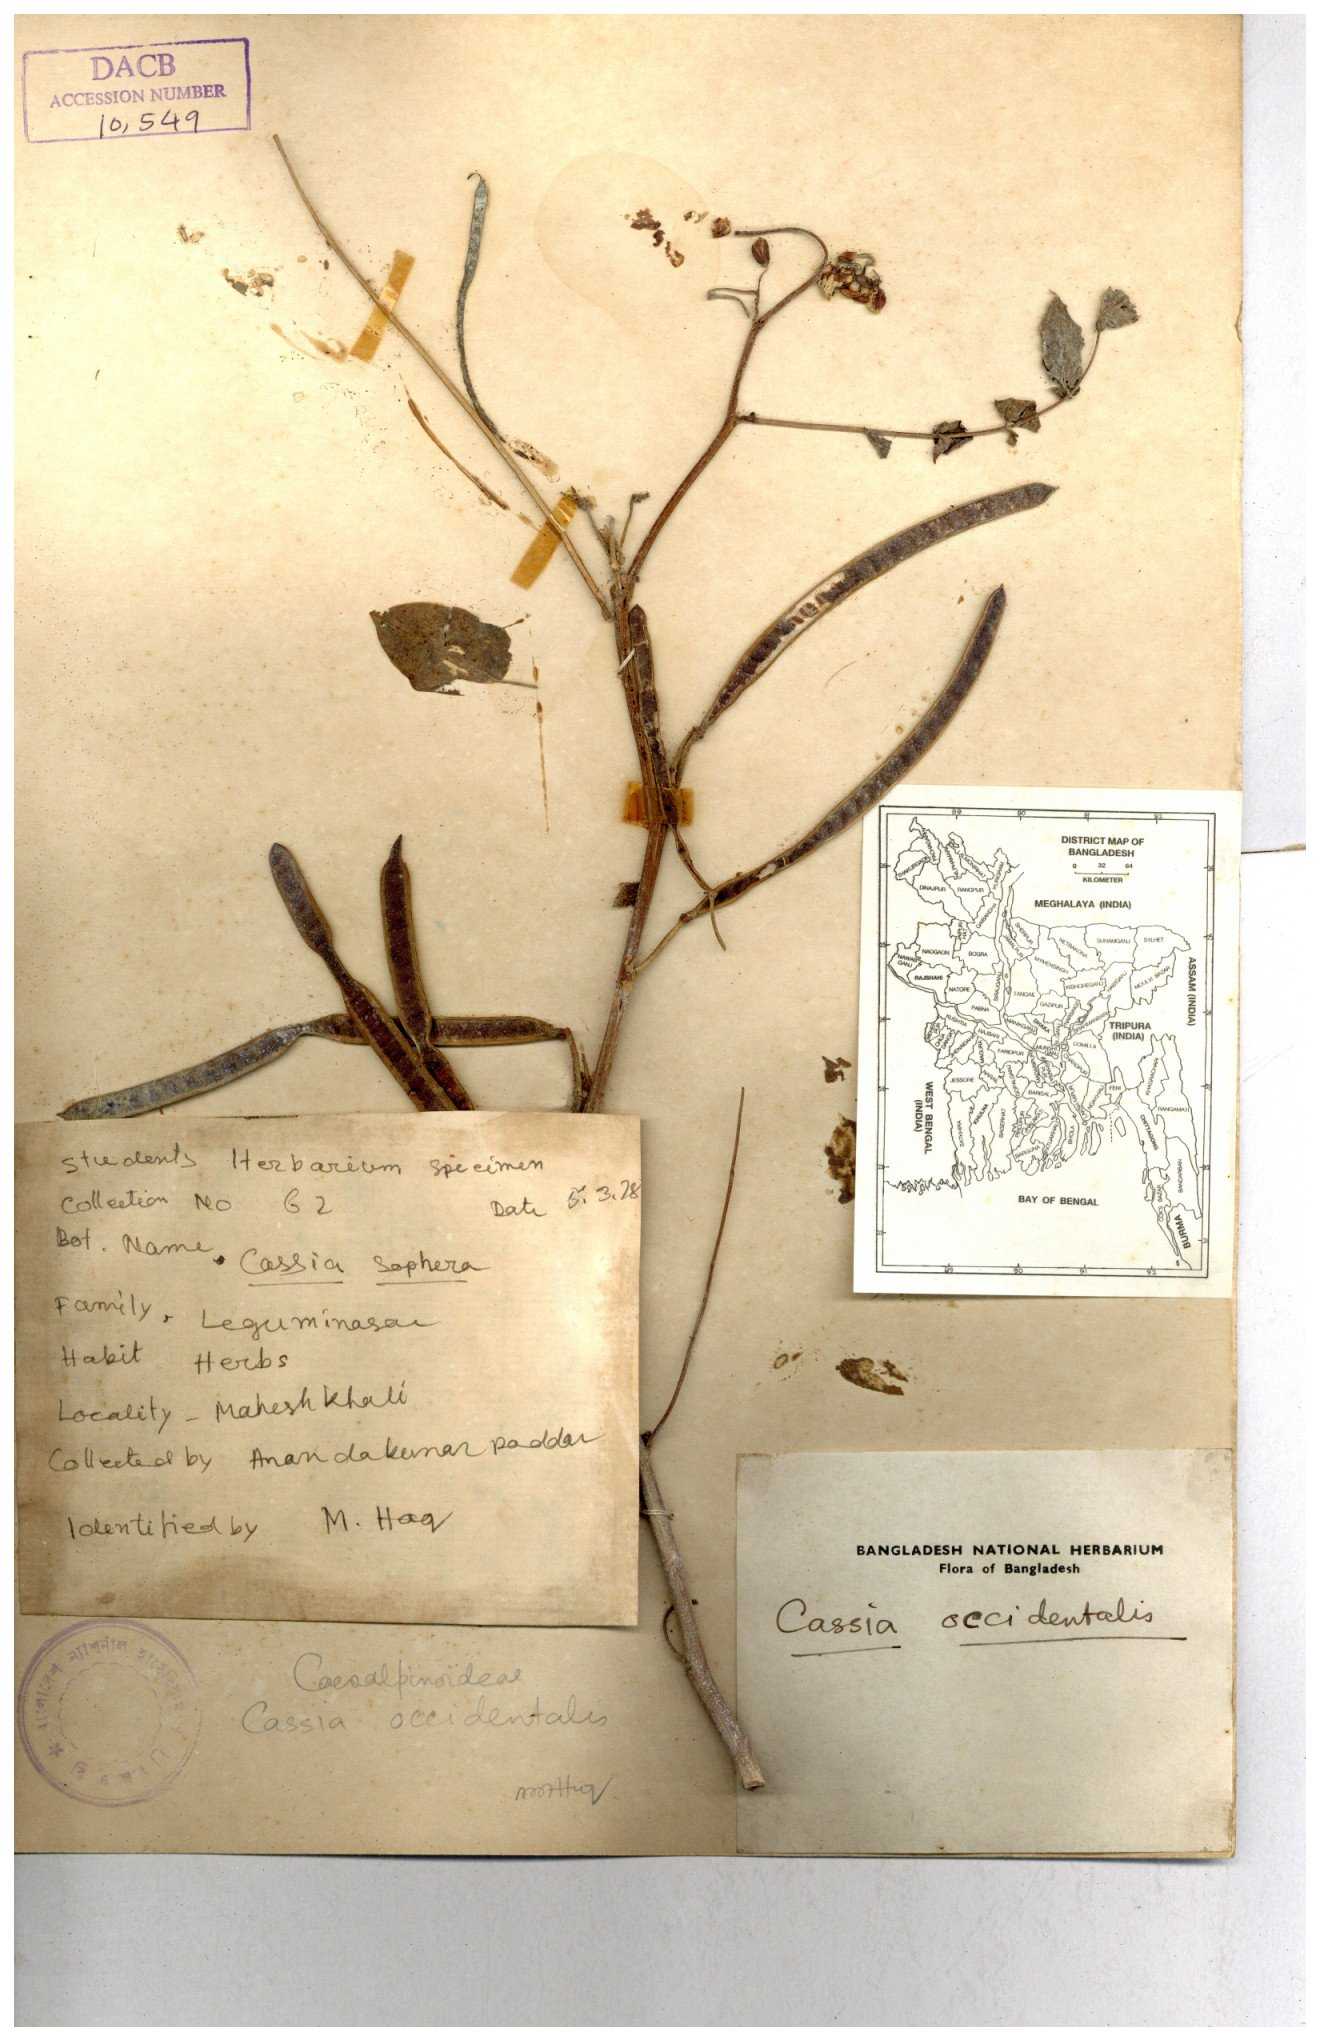 DACB
ACCESSION NUMBER
10,549
DISTRICT MAP OF
BANGLADESH
0 32 64
KILOMETER
MEGHALAYA (INDIA)
ASSAM (INDIA)
TRIPURA
(INDIA)
WEST BENGAL
(INDIA)
BAY OF BENGAL
BURMA
DINAJPUR
RANGPUR
NAOGAON
BOGRA
RAJSHAHI
NATORE
PABNA
TANGAIL
GAZIPUR
SUNAMGANJ
SYLHET
FARIDPUR
COMILLA
JESSORE
FENI
RANGAMATI
students Herbarium specimen
Collection No 62 Date 5.3.78
Bot. Name. Cassia sophera
Family. Leguminasae
Habit Herbs
Locality - Maheshkhali
Collected by Anandakumar Poddar
Identified by M. Haq
Caesalpinoideae
Cassia occidentalis
BANGLADESH NATIONAL HERBARIUM
Flora of Bangladesh
Cassia occidentalis